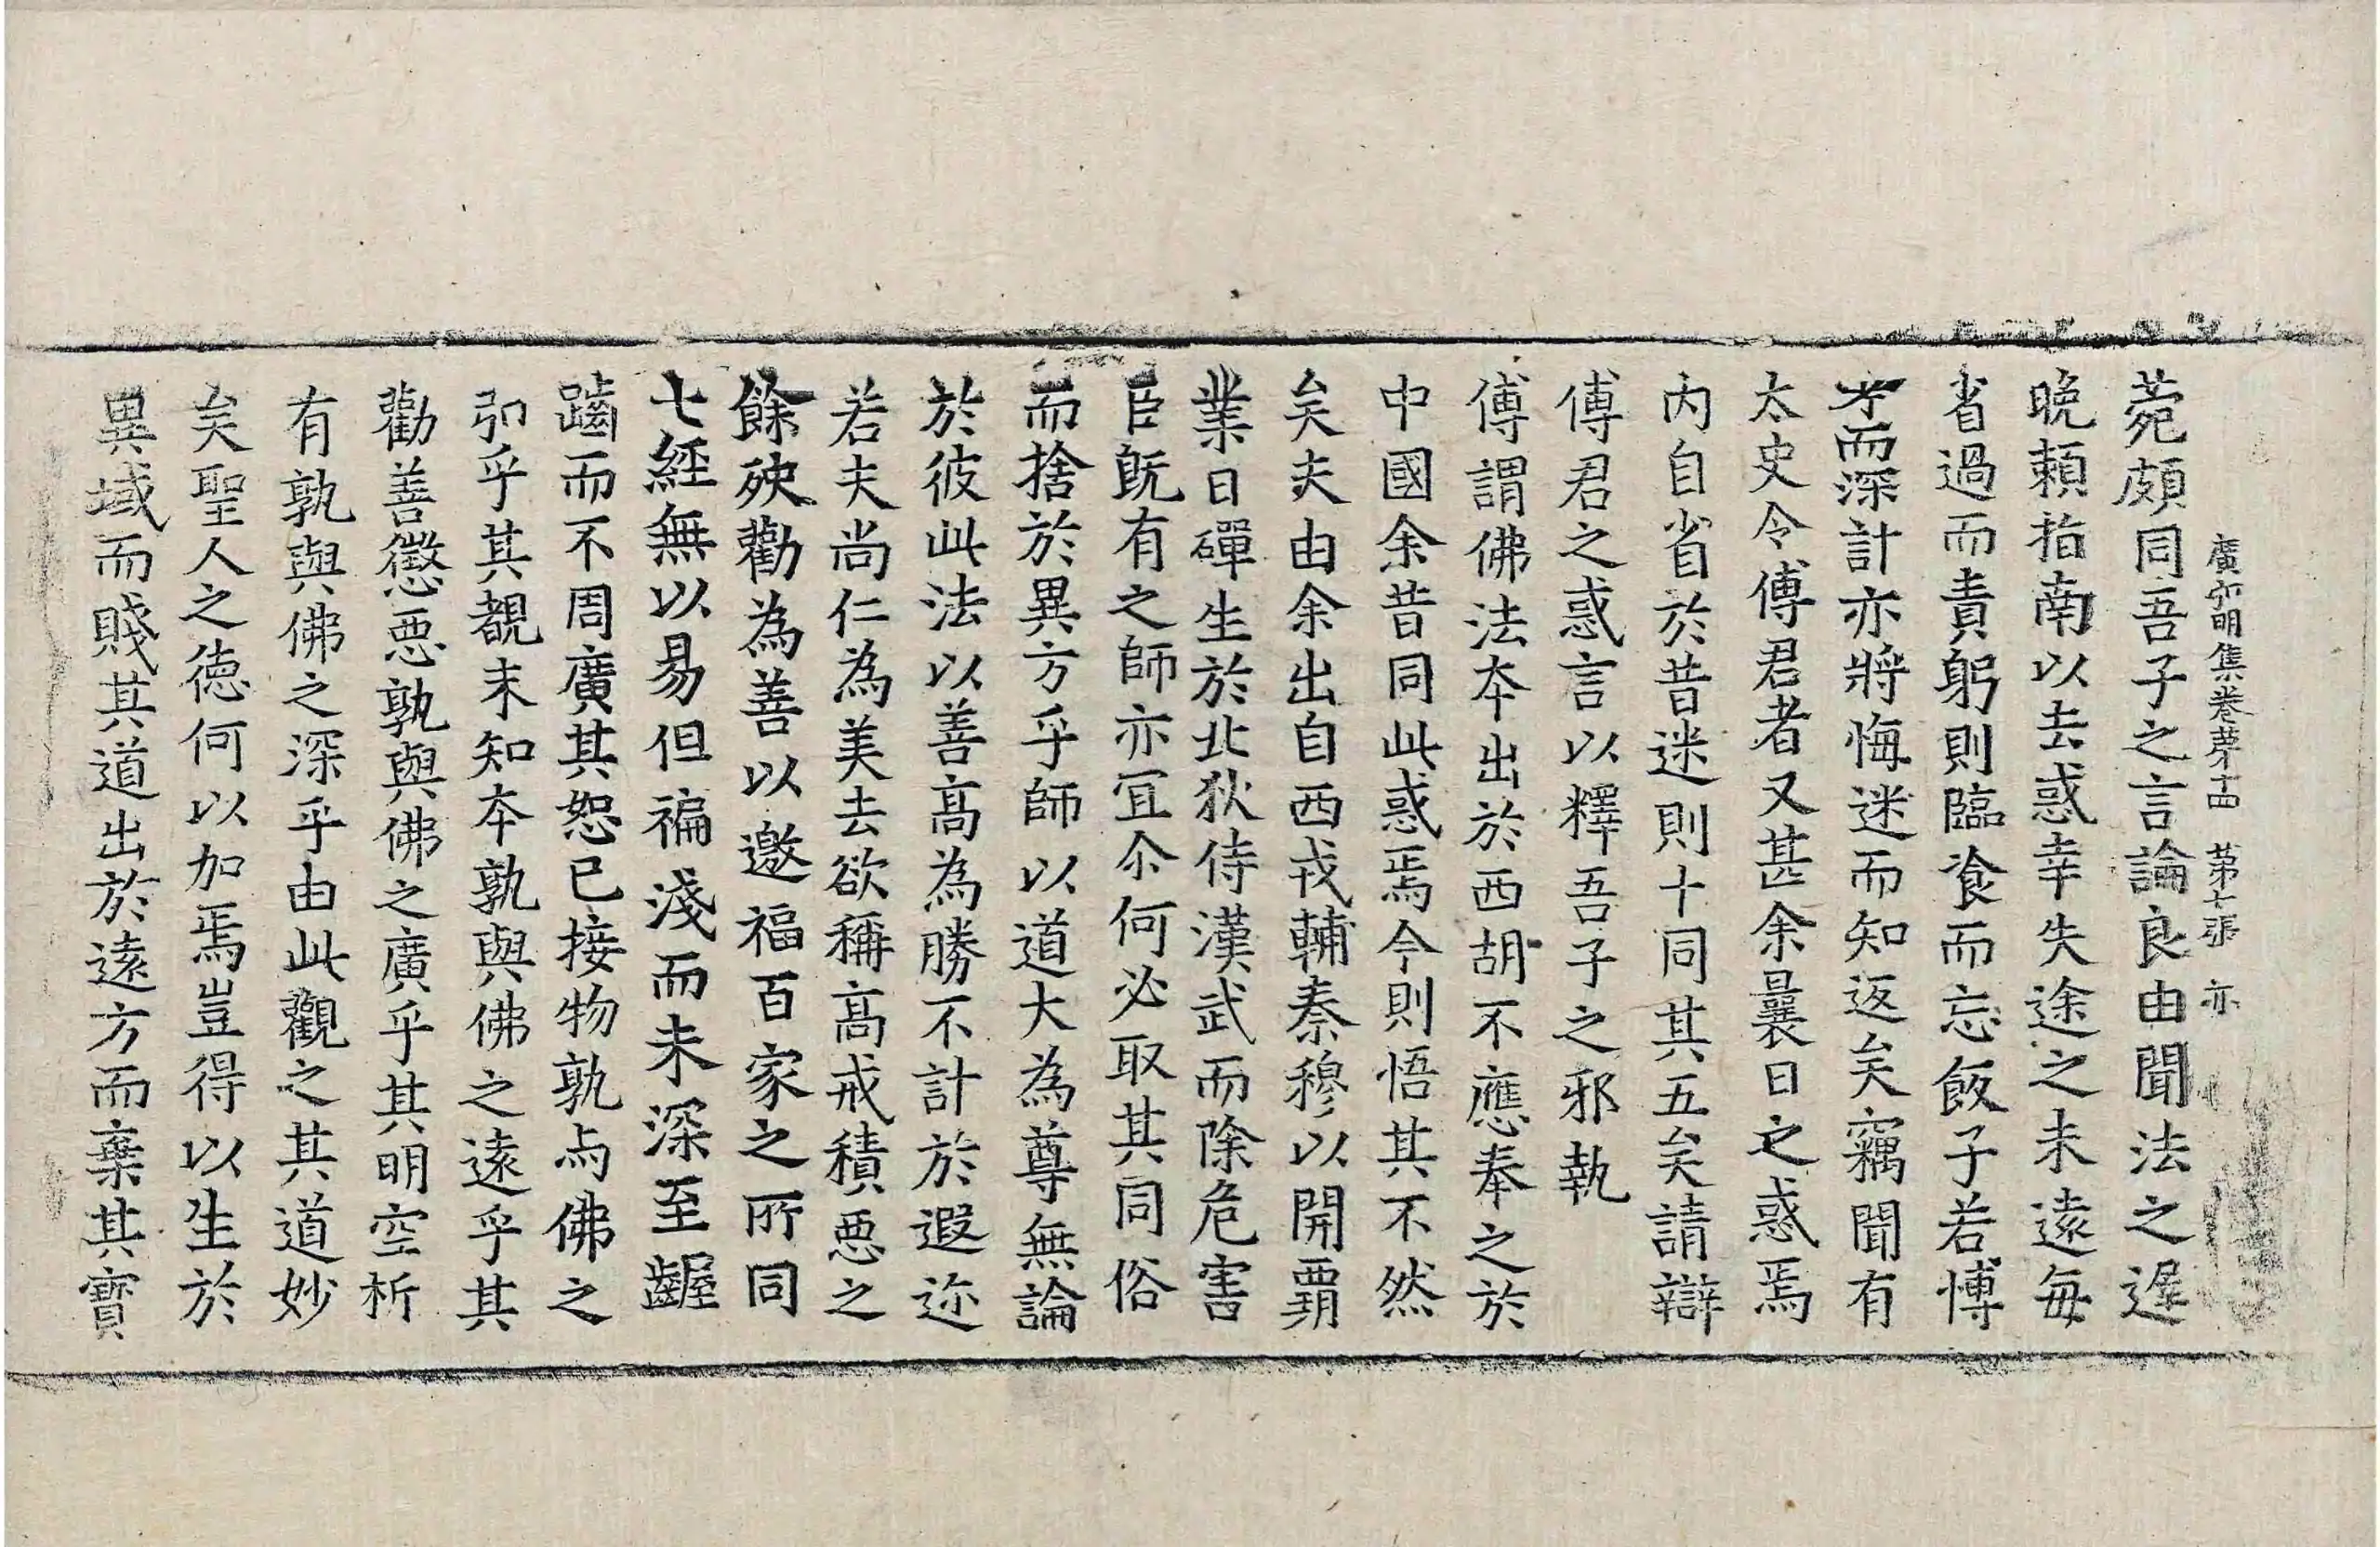 廣弘明集卷第十四　第七張　亦
菀頗同吾子之言論良由聞法之遲
晚賴指南以去惑幸失途之未遠每
省過而責躬則臨飡而忘飯子若博
考而深計亦將悔迷而知返矣竊聞有
太史令傅君者又甚余曩日之惑焉
內自省於昔迷則十同其五矣請辯
傅君之惑言以釋吾子之邪執
傅謂佛法本出於西胡不應奉之於
中國余昔同此惑焉今則悟其不然
矣夫由余出自西戎輔秦穆以開霸
業日磾生於北狄侍漢武而除危害
臣旣有之師亦冝尒何必取其同俗
而捨於異方乎師以道大為尊無論
於彼此法以善髙為勝不計於遐迩
若夫尚仁為美去欲稱髙戒積惡之
餘殃勸為善以邀福百家之所同
七經無以易但褊淺而未深至齷
齪而不周廣其恕已接物孰与佛之
弘乎其覩末知本孰與佛之遠乎其
勸善懲惡孰與佛之廣乎其明空析
有孰與佛之深乎由此觀之其道妙
矣聖人之德何以加焉豈得以生於
異域而賤其道出於遠方而棄其寶